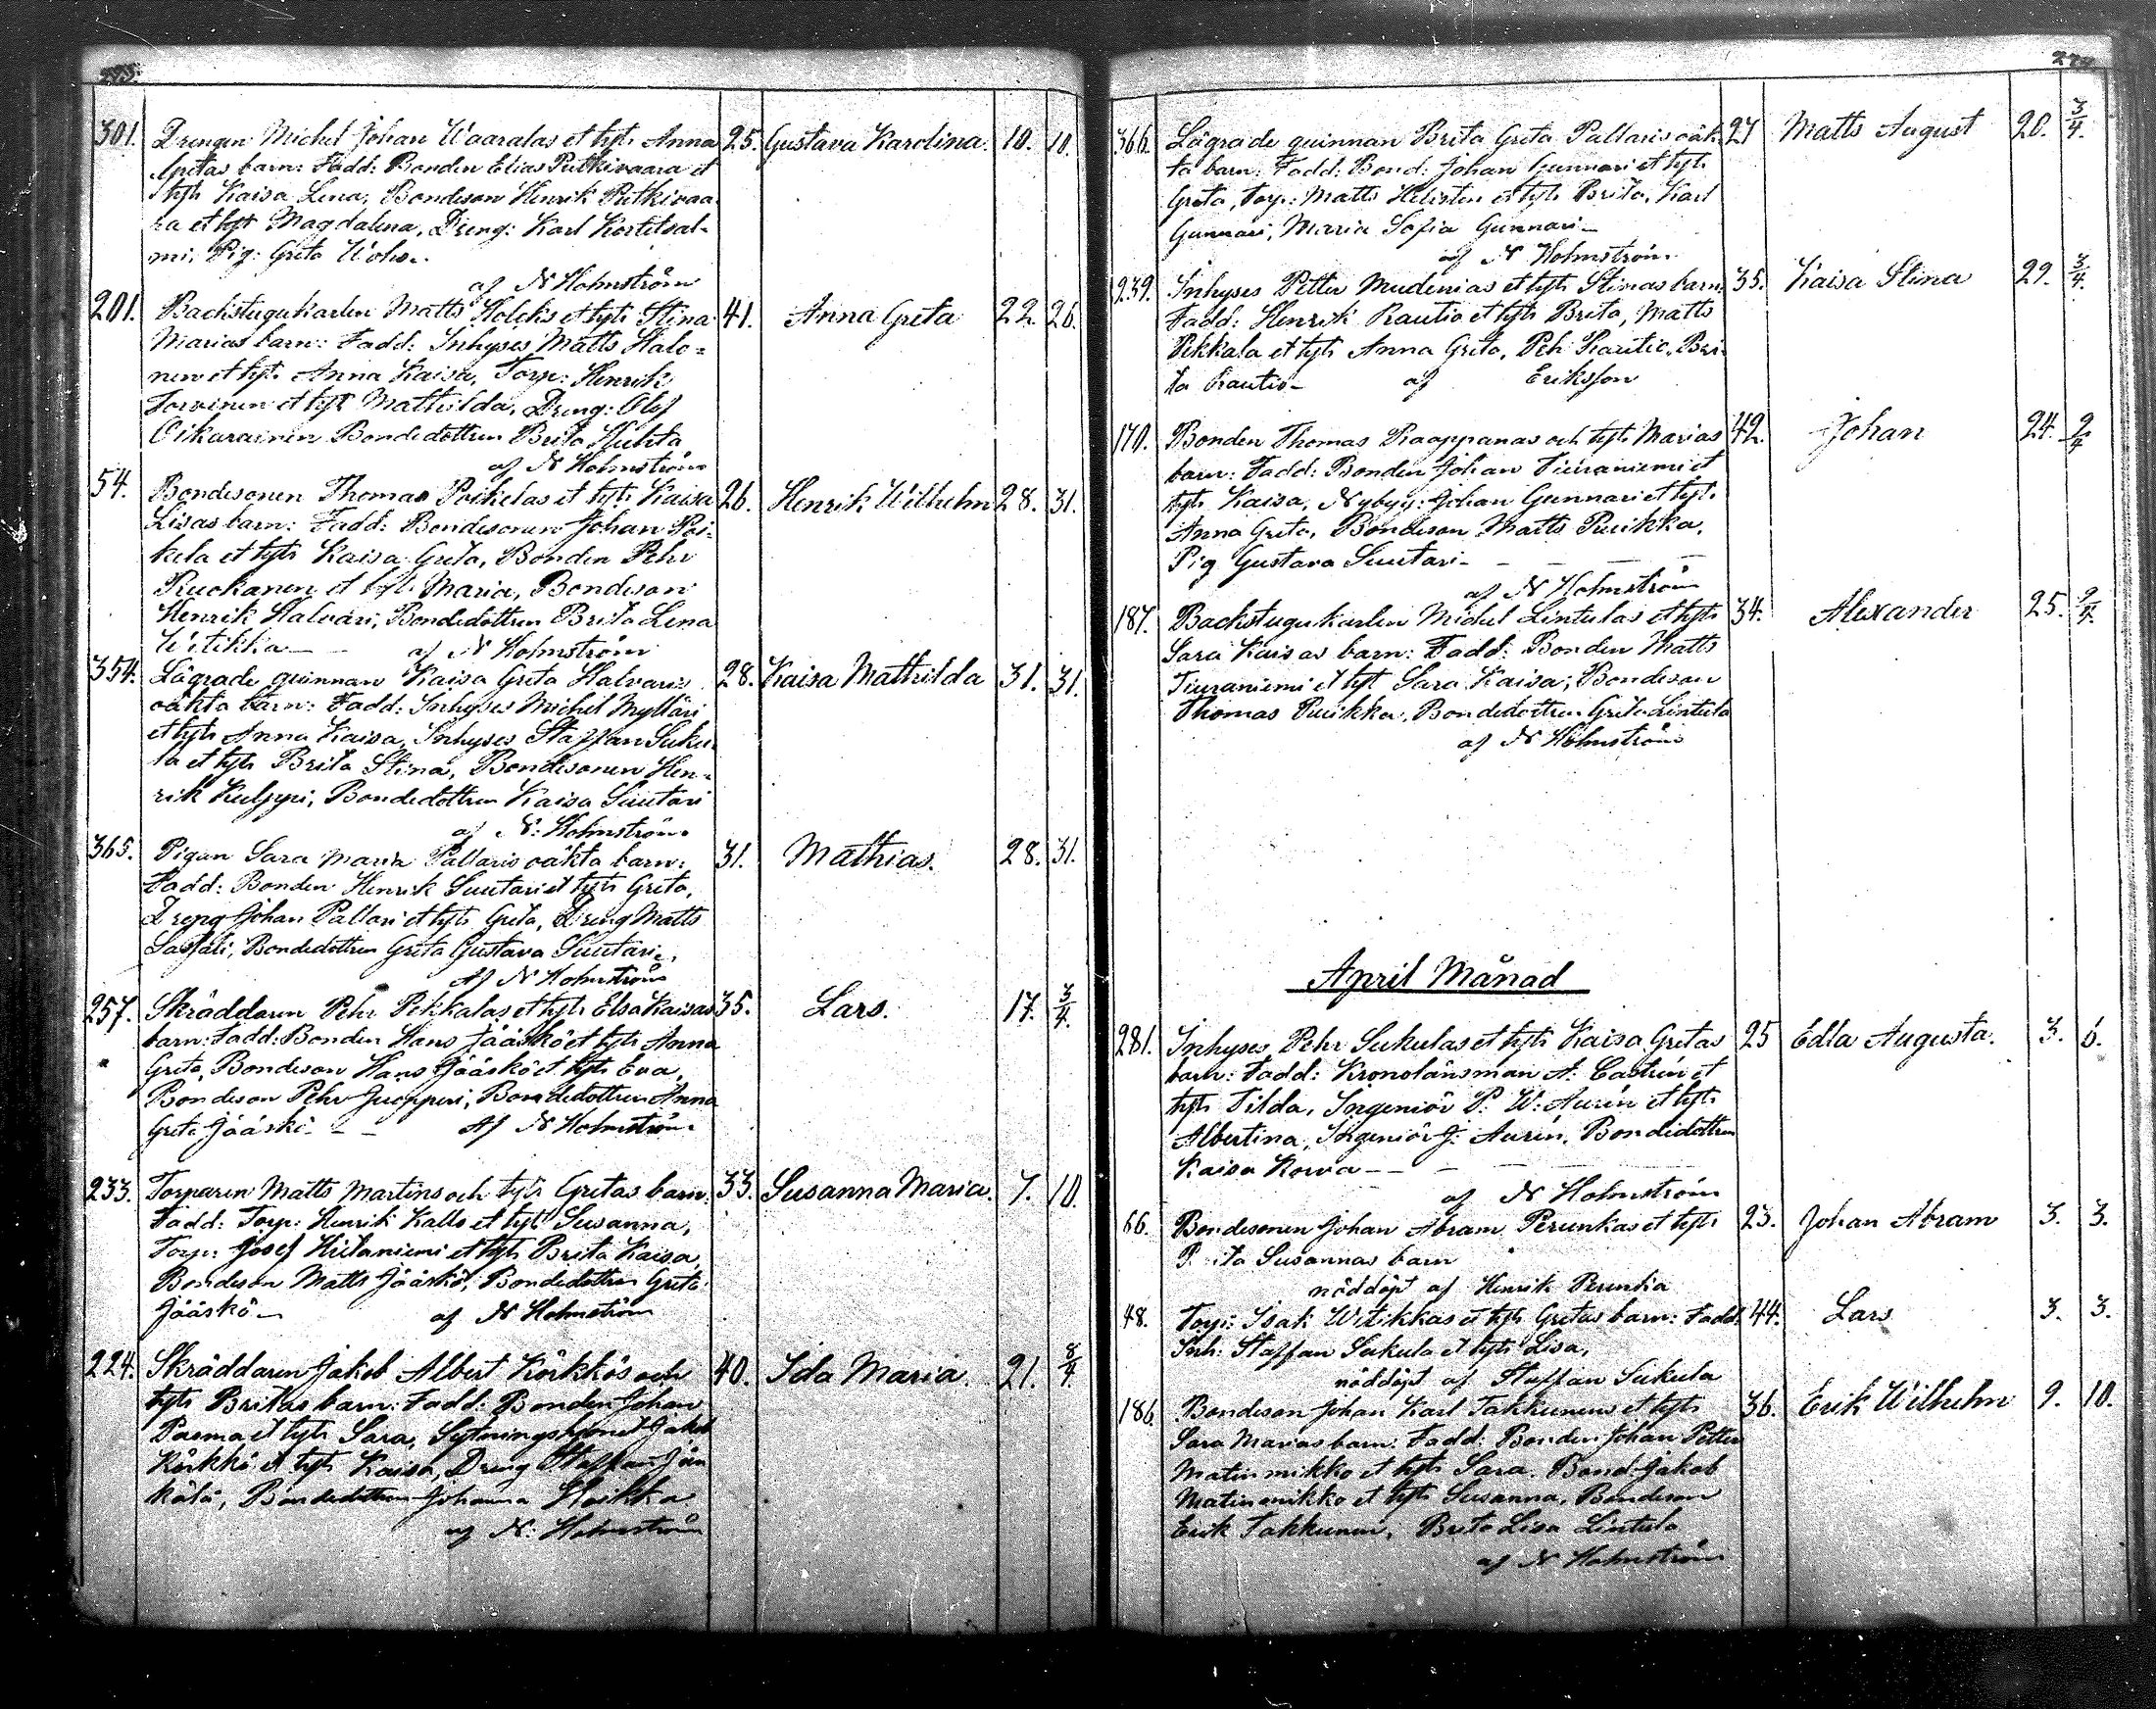 273.
301. Drengen Michel Johan Waaralas et hust. Anna 25. Gustava Karolina. 10. 10.
Gretas barn: Fadd: Bonden Elias Putkivaara et
hust Kaisa Lena, Bondeson Henrik Putkivaa
ra et hust Magdalena, Dreng: Karl Kortetsal-
mi, Pig: Greta
af N Holmström
201. Backstugukarlen Matts Holckis et hust. Stina 41. Anna Greta 22. 26.
Marias barn: Fadd: Inhyses Matts Halo=
nen et hust. Anna Kaisa, Torp: Henrik
Torvinen et hust Mathilda, Dreng: Olof
Oikarainen Bondedottren Brita Huhta
af N Holmström
54. Bondesonen Thomas Poikelas et hust. Kaisa 26. Henrik Wilhelm 28. 31.
Lisas barn: Fadd: Bondesonen Johan Poi-
kela et hust Kaisa Greta, Bonden Pehr
Ruokanen et hust. Maria, Bondeson
Henrik Halvari, Bondedottren Brita Lena
Witikka — af N Holmström
354. Lägrade quinnan Kaisa Greta Halvaris 28. Kaisa Mathilda 31. 31.
oäkta barn: Fadd: Inhyses Michel Mylläri
et hust Anna Kaisa, Inhyses Staffan Suku-
la et hust Brita Stina, Bondesonen Hen-
rik Kulppi, Bondedottren Kaisa Suutari
af N: Holmström
365. Pigan Sara Maria Pallaris oäkta barn: 31. Mathias. 28. 31.
Fadd: Bonden Henrik Suutari et hust Greta,
Dreng Johan Pallari et hust Greta, Dreng Matts
Sassali, Bondedottren Greta Gustava Suutari.
Af N Holmström
257. Skräddaren Pehr Pekkalas et hust Elsa Kaisas 35. Lars. 17. 3/4.
barn: Fadd: Bonden Hans Jääskö et hust Anna
Greta, Bondeson Hans Jääskö et hust Eva,
Bondeson Pehr Juopperi, Bondedottren Anna
Greta Jääskö — — Af N Holmström
233. Torparen Matts Martins och hust Gretas barn: 33. Susanna Maria. 7. 10.
Fadd: Torp: Henrik Kallo et hust Susanna,
Torp: Josef Hietaniemi et hust Brita Kaisa,
Bondeson Matts Jääskö, Bondedottren Greta
Jääskö — af N Holmström
224. Skräddaren Jakob Albert Körkkös och 40. Ida Maria. 21. 8/4.
hust Britas barn: Fadd: Bonden Johan
Pasma et hust Sara, Sytningshjonet Jakob
Körkkö et hust Kaisa, Dreng Staffan Jän
kälä, Bondedottren Johanna Hoikka
af N: Holmström
274
366. Lägrade quinnan Brita Greta Pallaris oäk- 27 Matts August 20. 3/4.
ta barn: Fadd: Bond: Johan Gunnari et hust
Greta, Torp: Matts Helisten et hust Brita, Karl
Gunnari, Maria Sofia Gunnari —
af N Holmström
239. Inhyses Petter Mudenias et hust Stinas barn: 35. Kaisa Stina 29. 3/4.
Fadd: Henrik Rautio et hust Brita, Matts
Pekkala et hust Anna Greta, Peh Rautio, Bri-
ta Rautio — af Eriksson
170. Bonden Thomas Raappanas och hust Marias 42. Johan 24. 2/4
barn: Fadd: Bonden Johan Tiuraniemi et
hust Kaisa, Nybyg: Johan Gunnari et hust
Anna Greta, Bondeson Matts Puikka,
Pig Gustava Suutari — — —
af N Holmström
187. Backstugukarlen Michel Lintulas et hust 34. Alexander 25. 2/4.
Sara Kaisas barn: Fadd: Bonden Matts
Tiuraniemi et hust Sara Kaisa; Bondeson
Thomas Puikka, Bondedottren Greta Lintula
af N Holmström
April Månad
281. Inhyses Pehr Sukulas et hust Kaisa Gretas 25 Edla Augusta. 3. 6.
barn: Fadd: Kronolänsman A: Castrén et
hust Tilda, Ingeniör P: W: Aurén et hust
Albertina, Ingeniör J: Aurén, Bondedottren
Kaisa Korva — — — —
af N Holmström
66. Bondesonen Johan Abram Perunkas et hust 23. Johan Abram 3. 3.
Susannas barn
nöddöpt af Henrik Perunka
48. Torp: Isak Witikkas et hust Gretas barn: Fadd: 44. Lars 3. 3.
Inh: Staffan Sukula et hust Lisa,
nöddöpt af Staffan Sukula
186. Bondeson Johan Karl Takkunens et hust 36. Erik Wilhelm 9. 10.
Sara Marias barn: Fadd: Bonden Johan Petter
Matinmikko et hust Sara, Bond: Jakob
Matinmikko et hust Susanna, Bondeson
Erik Takkunen, Brita Lisa Lintula
af N Holmström